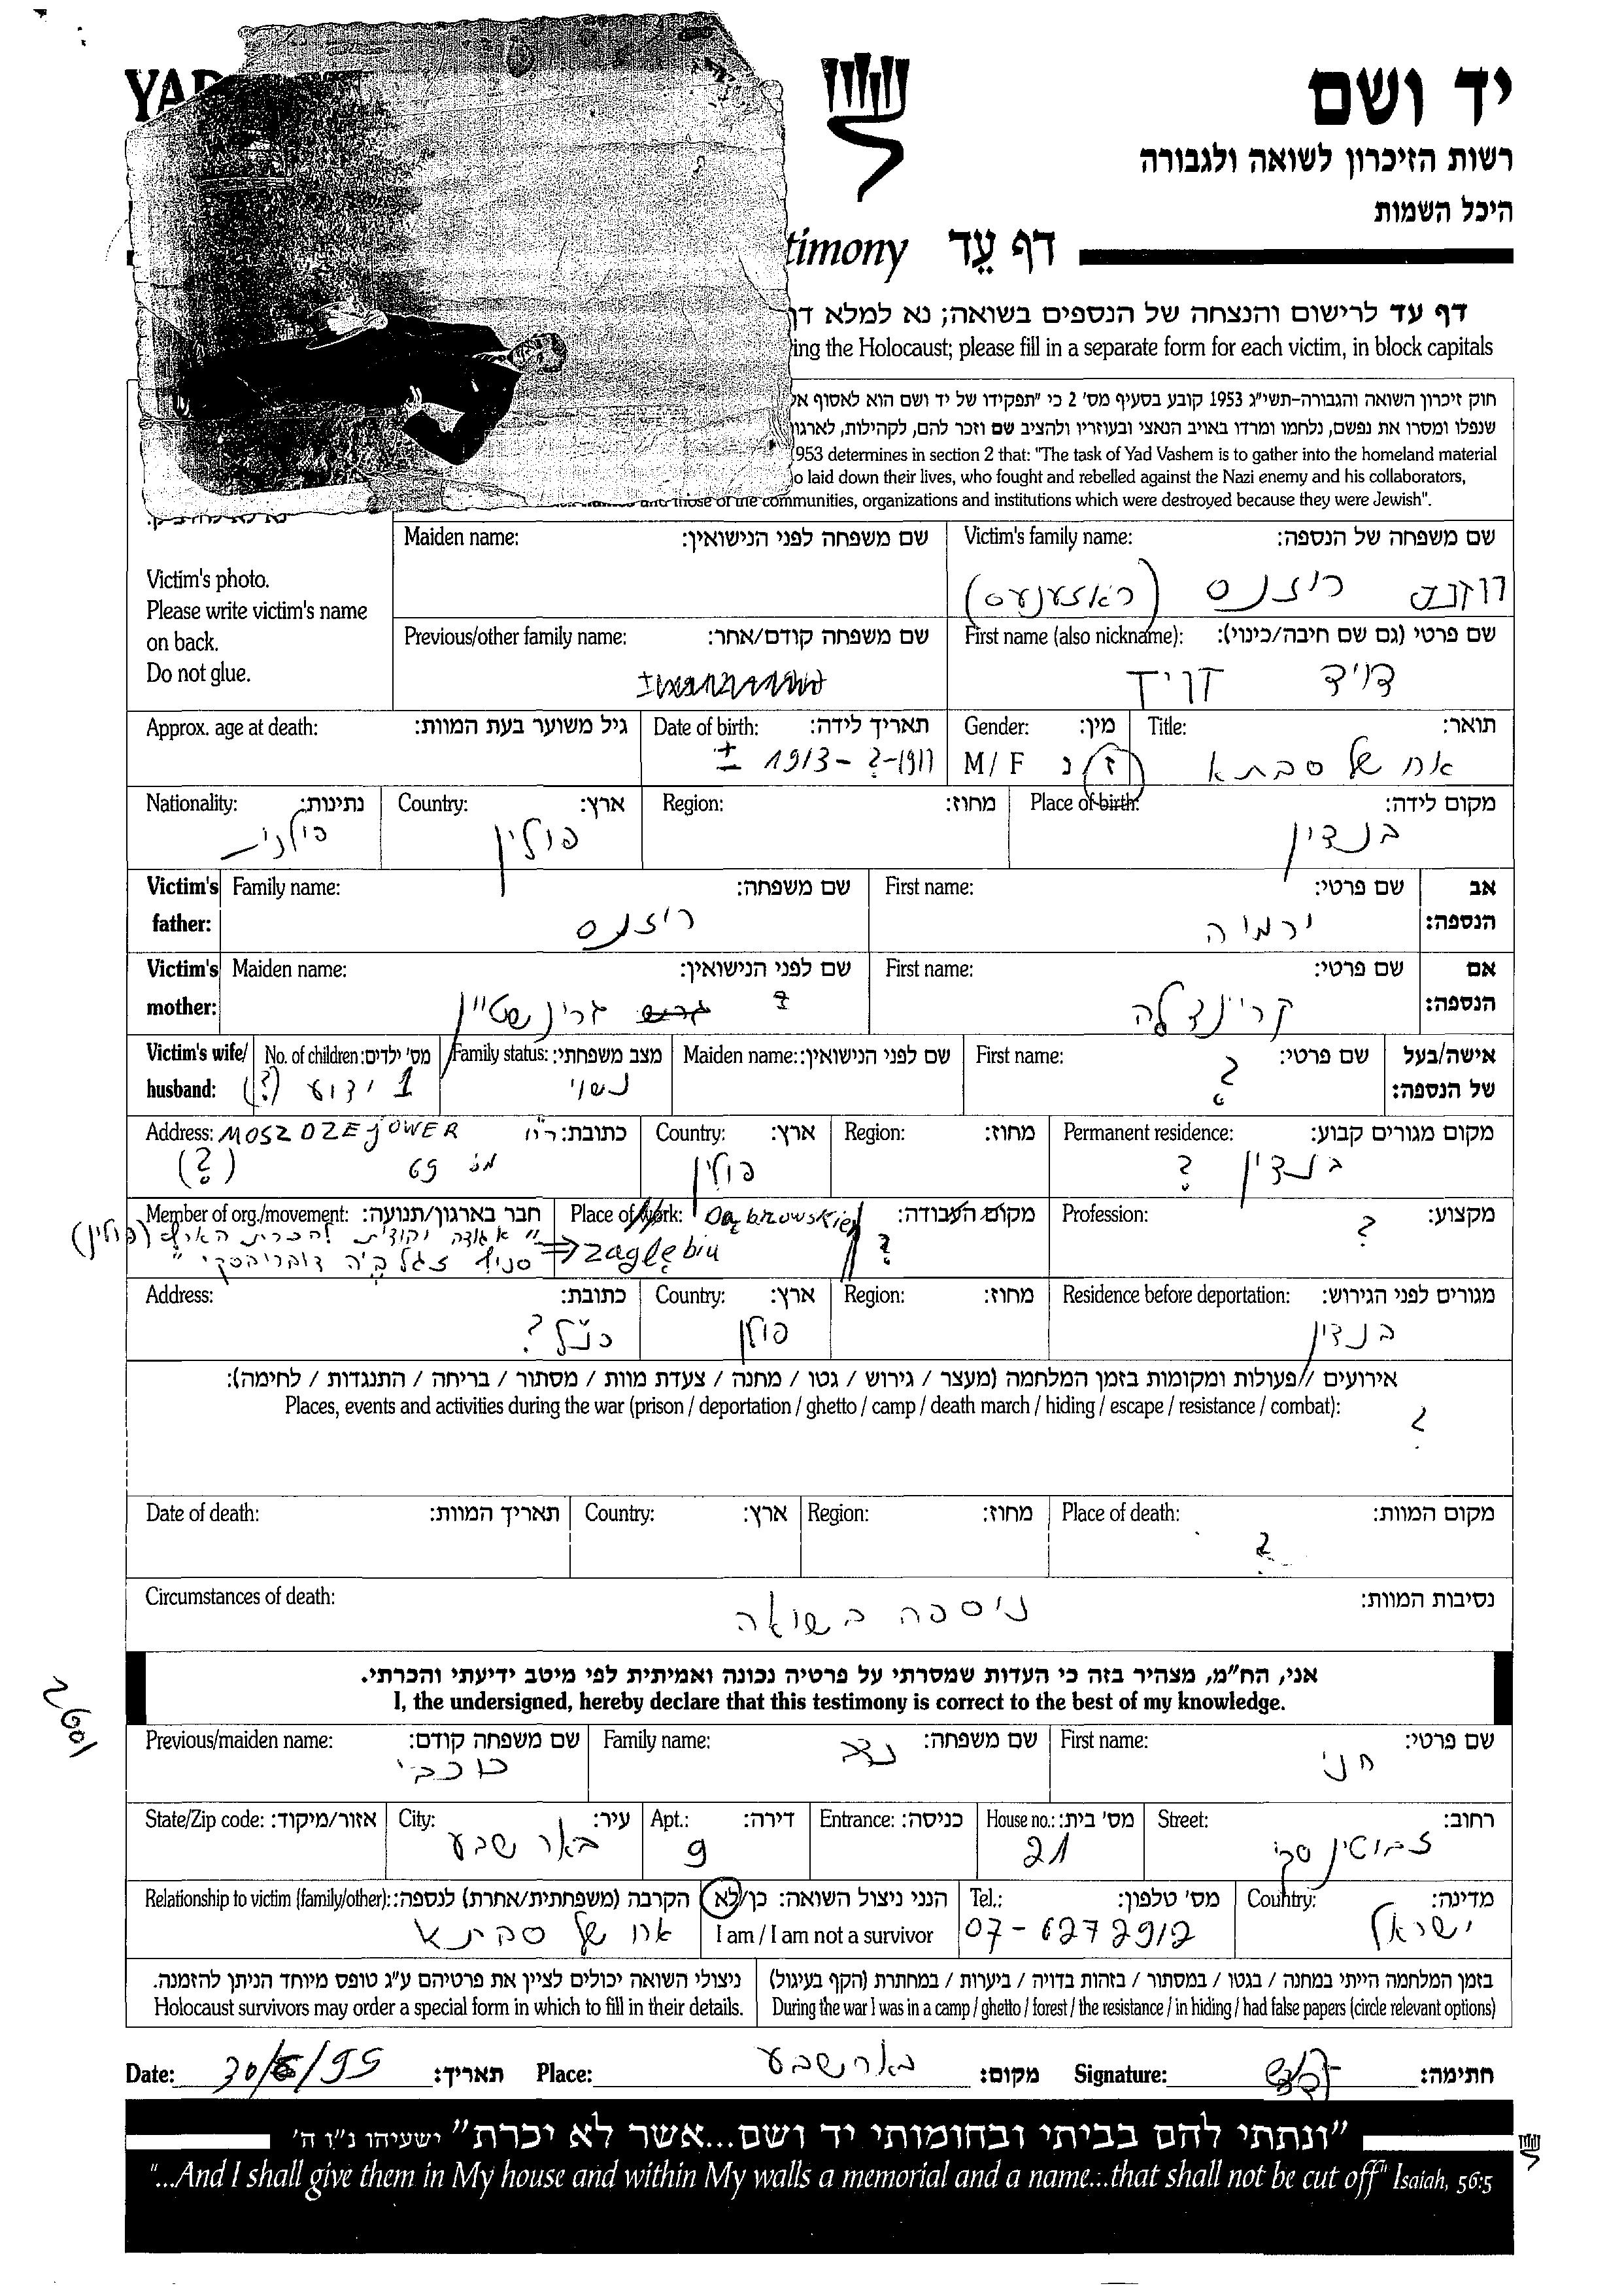 YAD
יד ושם
רשות הזיכרון לשואה ולגבורה
היכל השמות
timony דף עֵד
דף עד לרישום והנצחה של הנספים בשואה; נא למלא
ing the Holocaust; please fill in a separate form for each victim, in block capitals
חוק זיכרון השואה והגבורה-תשי״ג 1953 קובע בסעיף מס' 2 כי ״תפקידו של יד ושם הוא לאסוף
שנפלו ומסרו את נפשם, נלחמו ומרדו באויב הנאצי ובעוזריו ולהציב שם וזכר להם, לקהילות,
953 determines in section 2 that: "The task of Yad Vashem is to gather into the homeland material
o laid down their lives, who fought and rebelled against the Nazi enemy and his collaborators,
and those of the communities, organizations and institutions which were destroyed because they were Jewish".
Victim's photo.
Please write victim's name
on back.
Do not glue.
Maiden name: שם משפחה לפני הנישואין:
Victim's family name: שם משפחה של הנספה:
רוזנס ריזנס (ראזענעס)
Previous/other family name: שם משפחה קודם/אחר:
First name (also nickname): שם פרטי (גם שם חיבה/כינוי):
דויד דויד
Approx. age at death: גיל משוער בעת המוות:
Date of birth: תאריך לידה:
1911-?-1913 ±
Gender: מין:
M / F ז / נ
Title: תואר:
אח של סבתא
Nationality: נתינות:
פולנית
Country: ארץ:
פולין
Region: מחוז:
Place of birth: מקום לידה:
בנדין
Victim's father: Family name: שם משפחה:
ריזנס
First name: שם פרטי:
אב הנספה:
ירמיה
Victim's mother: Maiden name: שם לפני הנישואין:
? גרינשטיין
First name: שם פרטי:
אם הנספה:
קריינדלה
Victim's wife/ husband: No. of children: מס' ילדים:
1 ידוע (?)
Family status: מצב משפחתי:
נשוי
Maiden name: שם לפני הנישואין:
First name: שם פרטי:
?
אישה/בעל של הנספה:
Address: כתובת: רח'
MOSZDZEJOWER
מס' 69
(?)
Country: ארץ:
פולין
Region: מחוז:
Permanent residence: מקום מגורים קבוע:
בנדין ?
Member of org./movement: חבר בארגון/תנועה:
"אגודה יהודית להכרת הארץ (פולין)
סניף זגלביה דומברובסקי"
Place of work: מקום העבודה:
Dąbrowskiej
⇒ Zagłębiu ?
Profession: מקצוע:
?
Address: כתובת:
כנ״ל ?
Country: ארץ:
פולין
Region: מחוז:
Residence before deportation: מגורים לפני הגירוש:
בנדין
אירועים / פעולות ומקומות בזמן המלחמה (מעצר / גירוש / גטו / מחנה / צעדת מוות / מסתור / בריחה / התנגדות / לחימה):
Places, events and activities during the war (prison / deportation / ghetto / camp / death march / hiding / escape / resistance / combat):
?
Date of death: תאריך המוות:
Country: ארץ:
Region: מחוז:
Place of death: מקום המוות:
?
Circumstances of death: נסיבות המוות:
ניספה בשואה
אני, הח״מ, מצהיר בזה כי העדות שמסרתי על פרטיה נכונה ואמיתית לפי מיטב ידיעתי והכרתי.
I, the undersigned, hereby declare that this testimony is correct to the best of my knowledge.
Previous/maiden name: שם משפחה קודם:
כוכבי
Family name: שם משפחה:
נצר
First name: שם פרטי:
חני
State/Zip code: אזור/מיקוד:
City: עיר:
באר שבע
Apt.: דירה:
9
Entrance: כניסה:
House no.: מס' בית:
21
Street: רחוב:
ז'בוטינסקי
Relationship to victim (family/other): הקרבה (משפחתית/אחרת) לנספה:
אח של סבתא
הנני ניצול השואה: כן/לא
I am / I am not a survivor
Tel.: מס' טלפון:
07-6272912
Country: מדינה:
ישראל
ניצולי השואה יכולים לציין את פרטיהם ע״ג טופס מיוחד הניתן להזמנה.
Holocaust survivors may order a special form in which to fill in their details.
בזמן המלחמה הייתי במחנה / בגטו / במסתור / בזהות בדויה / ביערות / במחתרת (הקף בעיגול)
During the war I was in a camp / ghetto / forest / the resistance / in hiding / had false papers (circle relevant options)
Date: 30/6/99 תאריך:
Place: באר שבע מקום:
Signature: חתימה:
״ונתתי להם בביתי ובחומותי יד ושם...אשר לא יכרת״ ישעיהו נ״ו ה'
"...And I shall give them in My house and within My walls a memorial and a name...that shall not be cut off" Isaiah, 56:5